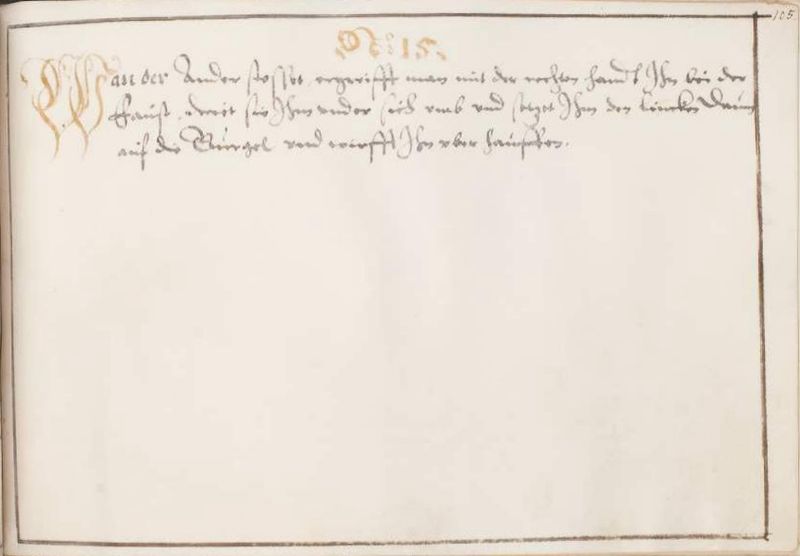 105
No: 15.
Wan der Ander stosset, ergreifft man mit der rechten handt Ihn bei der
Faust, dreit sie Ihm under sich umb und setzet Ihm den lincken Daum
auf die Gurgel und wirfft Ihn uber hauffen.